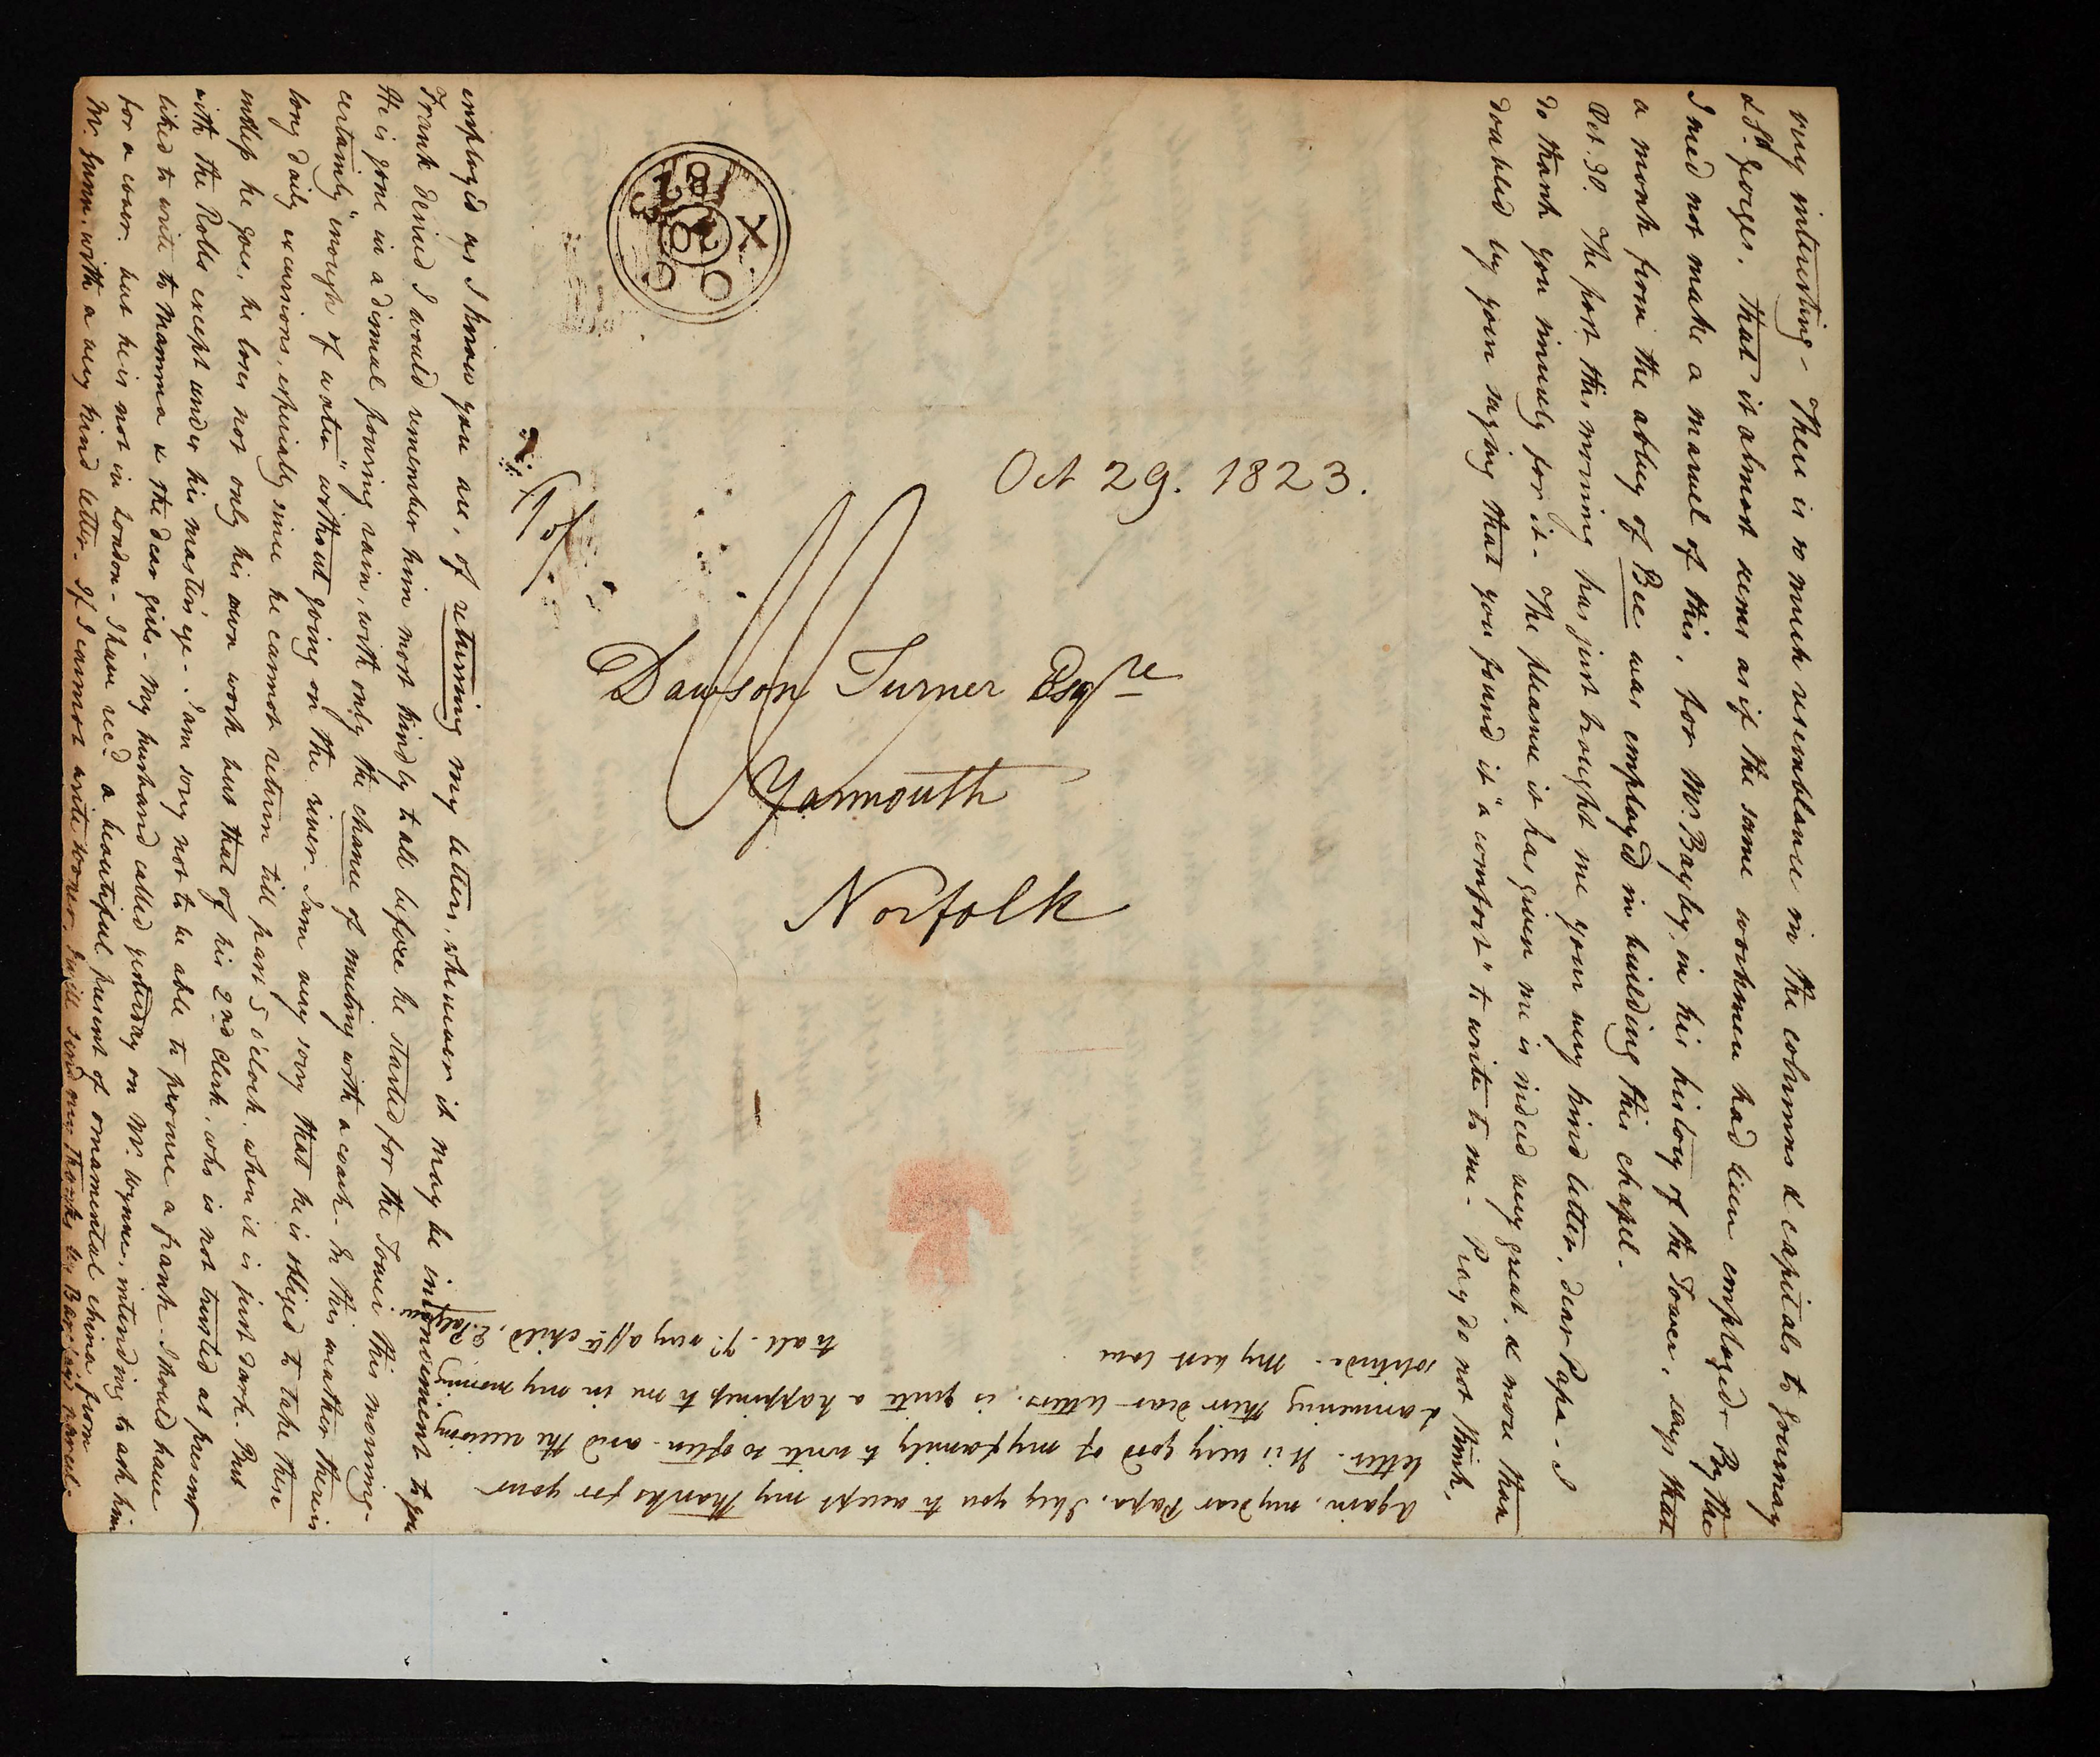 very interesting - There is so much resemblance in the columns & capitals to Journay
& St. Georges. that it almost seems as if the same workmen had been employed. By the
I need not make a marvel of this, for Mr. Bayley, in his history of the Tower, says that
a monk from the abbey of Bec was employed in building this chapel.
Oct. 30. The post this morning has just brought me your very kind letter, dear Papa - I
do thank you sincerely for it - The pleasure it has given me is indeed very great, & more than
doubled by your saying that you found it "a comfort" to write to me - Pray do not think,
employed as I know you are, of returning my letters, whenever it may be inconvenient to you
Frank desired I would remember him most kindly to all before he started for the Tower this morning -
He is gone in a dismal pouring rain, with only the chance of meeting with a coach - In this weather there is
certainly "enough of water" without going on the river - I am very sorry that he is obliged to take these
long daily excursions, especially since he cannot return till past 5 o'clock, when it is just dark. But
unless he goes, he loses not only his own work but that of his 2nd Clerk, who is not trusted at present
with the Rolls except under his master's eye - I am sorry not to be able to procure a frank - I should have
liked to write to Mamma & the dear girls - My husband called yesterday on Mr. Wynne, intending to ask him
for a cover, but he is not in London - I have recd. a beautiful present of ornamental china from
Mr. Gunn, with a very kind letter. If I cannot write sooner, I will send my thanks by parcel.
Again, my dear Papa, I beg you to accept my thanks for your
letter - It is very good of my family to write so often - and the receiving
& answering their dear letters, is quite a happiness to me in my morning
solitude - My best love
to all - Yr. very afft. child, E. Palgrave
Oct 29. 1823.
Dawson Turner Esqre
Yarmouth
Norfolk